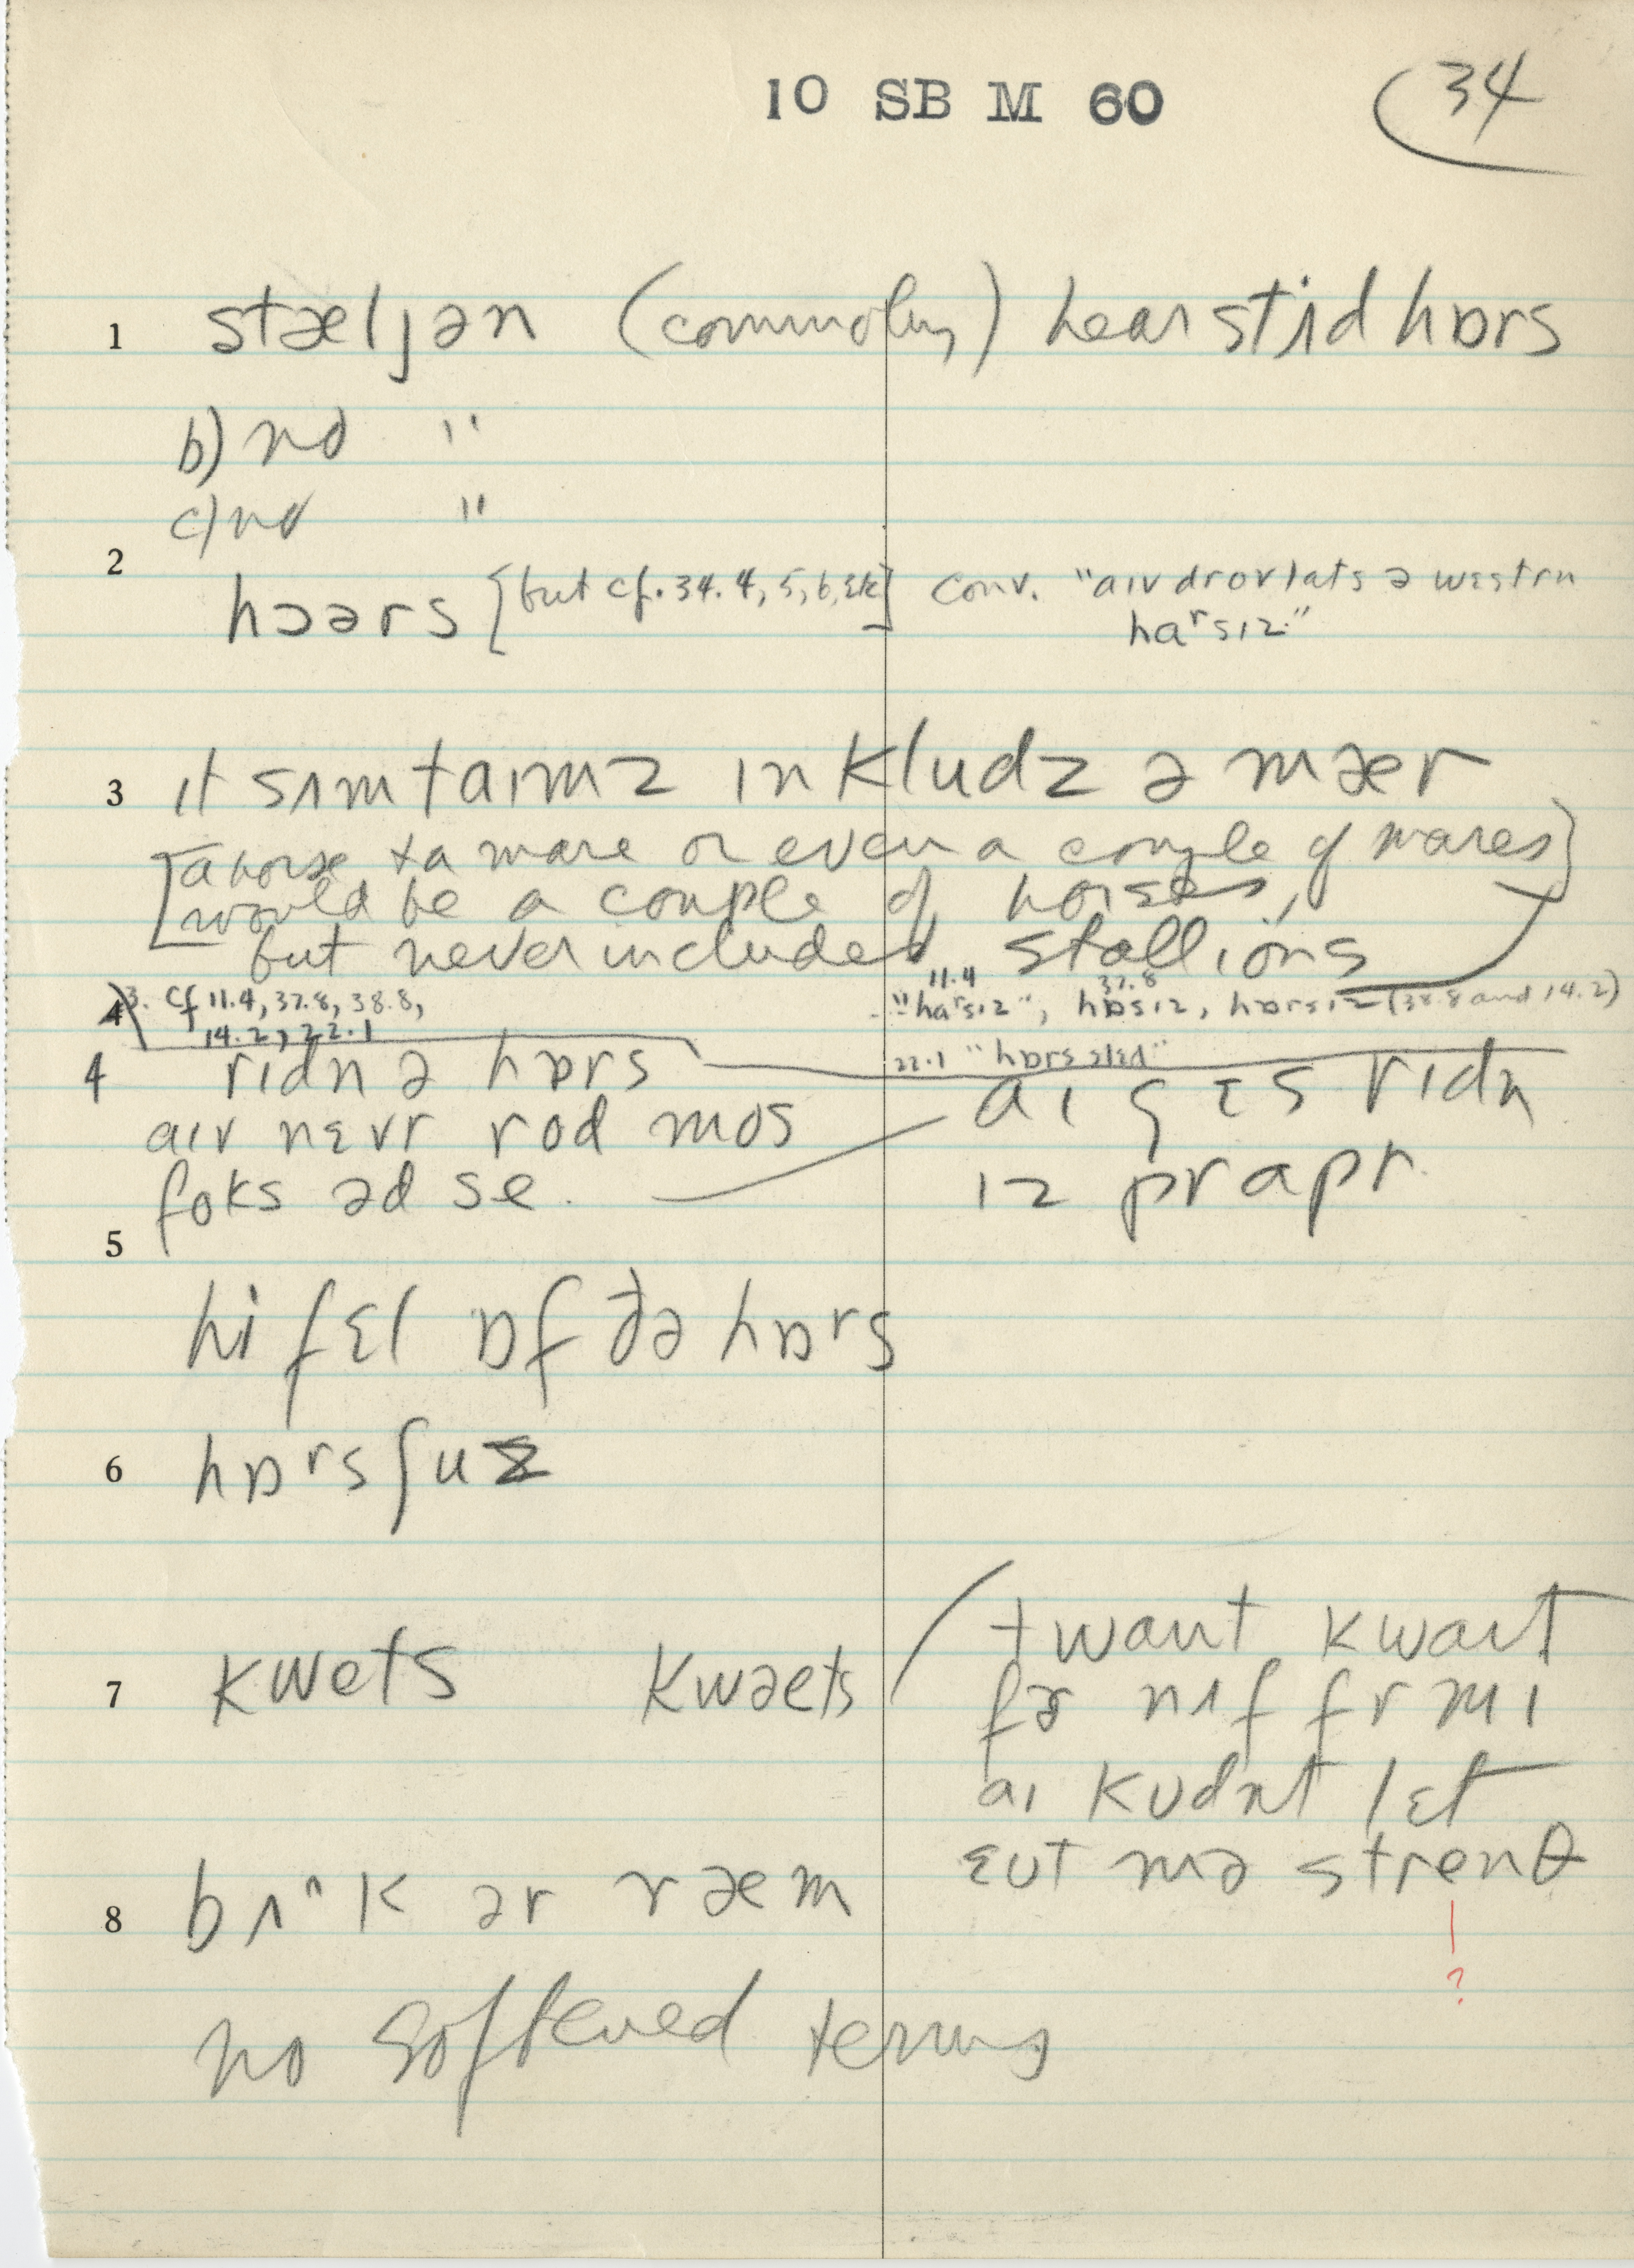 10 SB M 60 34
1 stæljən (commonly) hear stʌdhɒrs
b) no "
c) no "
2
hɔərs [but cf. 34.4, 5, 6, etc] Conv. "aɪv drov lats ə wɛstrn
haʳsɪz."
3 ɪt sʌmtaɪmz ɪnkludz ə mær
[a horse + a mare or even a couple of mares]
would be a couple of horses,
but never included stallions
3. cf 11.4, 37.8, 38.8,
14.2, 22.1
11.4 37.8
"haʳsɪz", hɒsɪz, hɒrsɪz (38.8 and 14.2)
22.1 "hɒrs slɛd"
4 rɪdn ə hɒrs
aɪv nɛvr rod mos
foks əd se.
aɪ gɛs rɪdn
ɪz prapr.
5
hi fɛl ɒf ðə hɒrs
6 hɒʳsʃuz
7 kwets kwəets
twant kwaɪt
fər nʌf fr mɪ
aɪ kʊdnt lɛt
ɛʊt mə strenθ
?
8 bʌ^k ər ræm
no softened terms